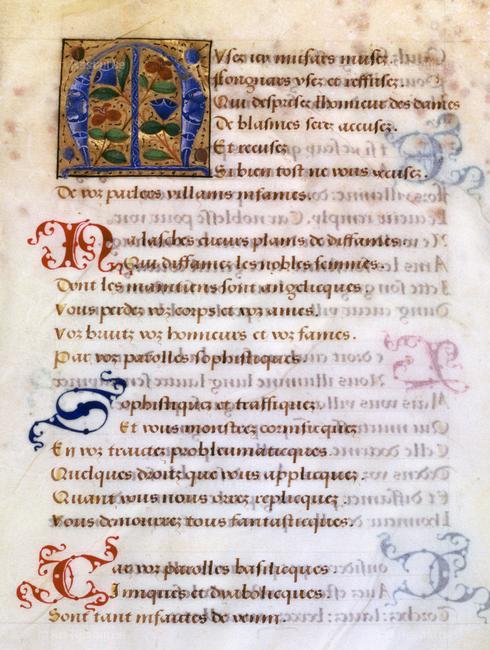 MVsez icy musars musez.
Hongnars vsez et reffusez.
Qui desprisez lhonneur des dames
De blasmes serez accusez.
Et recusez
Si bien tost ne vous excusez.
De voz parlers villains infames.
Malasches cueurs plains de diffames.
Qui diffamez les nobles femmes.
Dont les maintiens sont angelicques
Vous perdez voz corps et voz ames.
Voz bruitz voz honneurs et voz fames.
Par voz parolles sophistiques
Sophistiquez et traffiquez.
Et vous monstrez cornificquez
En voz traictez probleumaticques.
Quelques droitz que vous applicquez.
Quant vous nous orrez replicquez.
Vous demourrez tous fantasticques.
Car voz parolles basilicques
Iniques et diabolicques
Sont tant infaictes de venin.